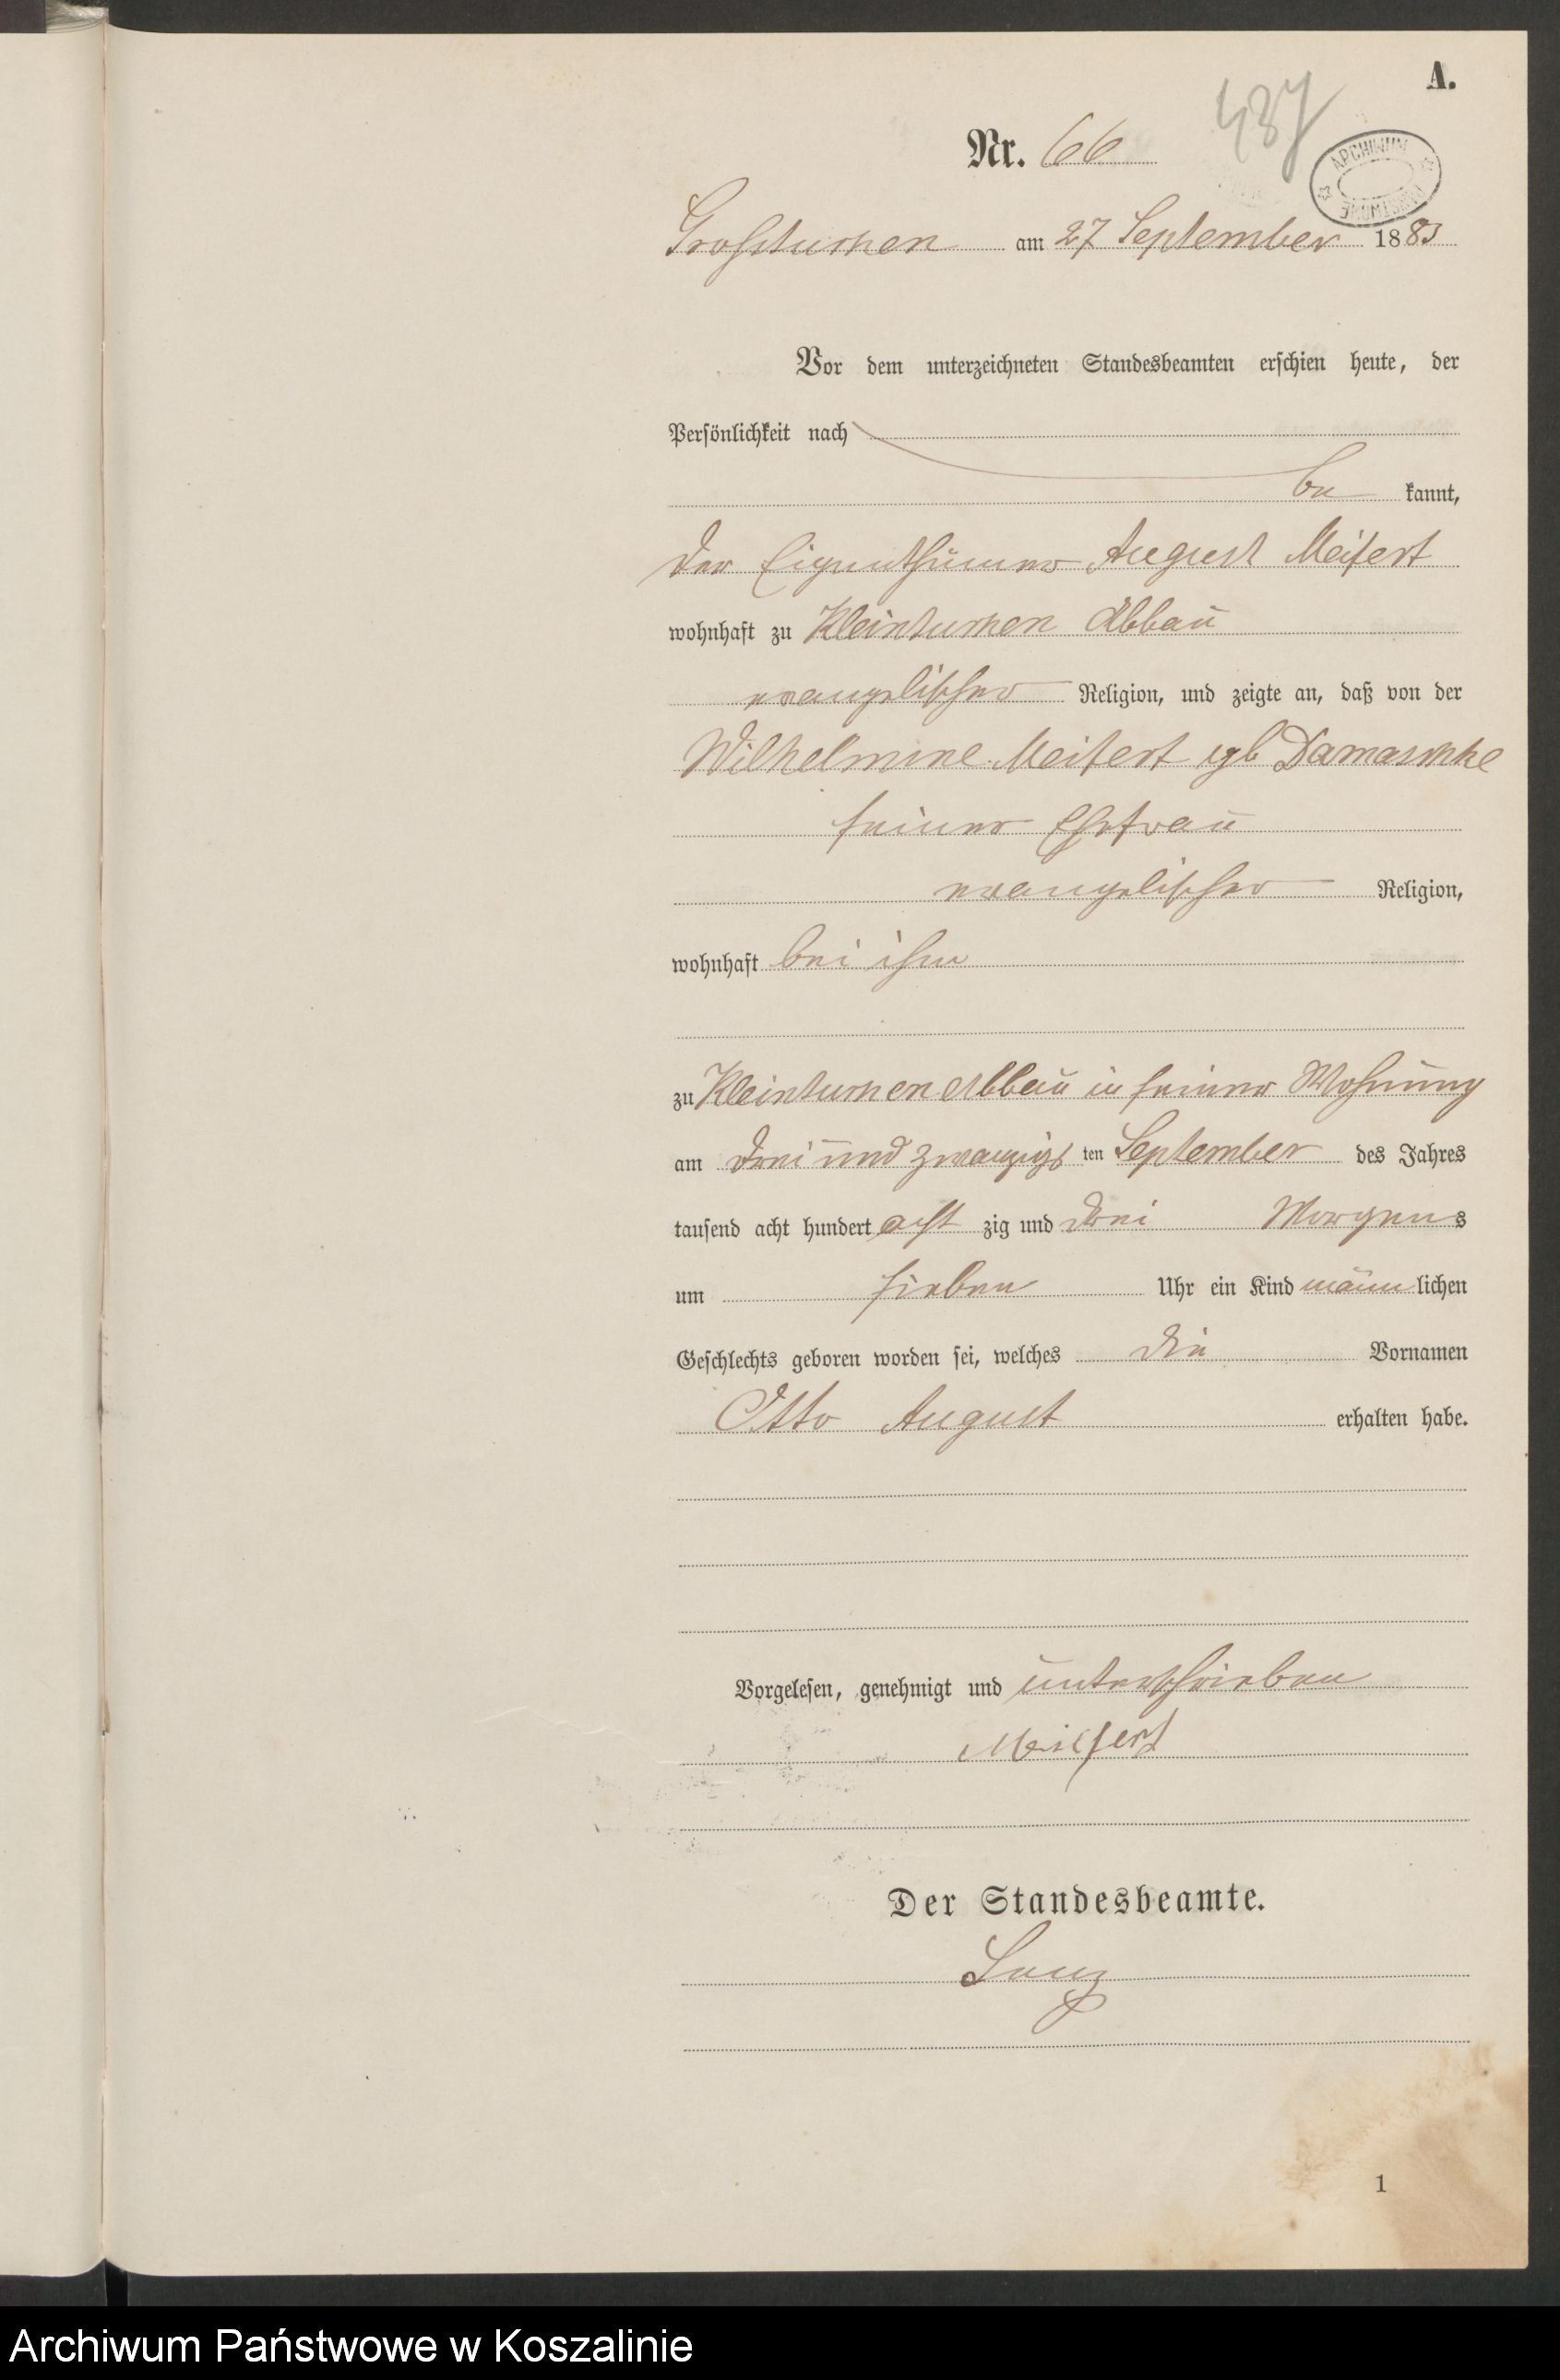 A.
437
Nr. 66
ARCHIWUM PAŃSTWOWE
Grosstuchen am 27 September 1883
Vor dem unterzeichneten Standesbeamten erschien heute, der
Persönlichkeit nach
be kannt,
der Eigenthümer August Meifert
wohnhaft zu Kleintuchen Abbau
evangelischer Religion, und zeigte an, daß von der
Wilhelmine Meifert geb Damaschke
seiner Ehefrau
evangelischer Religion,
wohnhaft bei ihm
zu Kleintuchen Abbau in seiner Wohnung
am drei und zwanzigs ten September des Jahres
tausend acht hundert acht zig und drei Morgens
um sieben Uhr ein Kind männ lichen
Geschlechts geboren worden sei, welches die Vornamen
Otto August erhalten habe.
Vorgelesen, genehmigt und unterschrieben
Meifert
Der Standesbeamte.
1
Archiwum Państwowe w Koszalinie